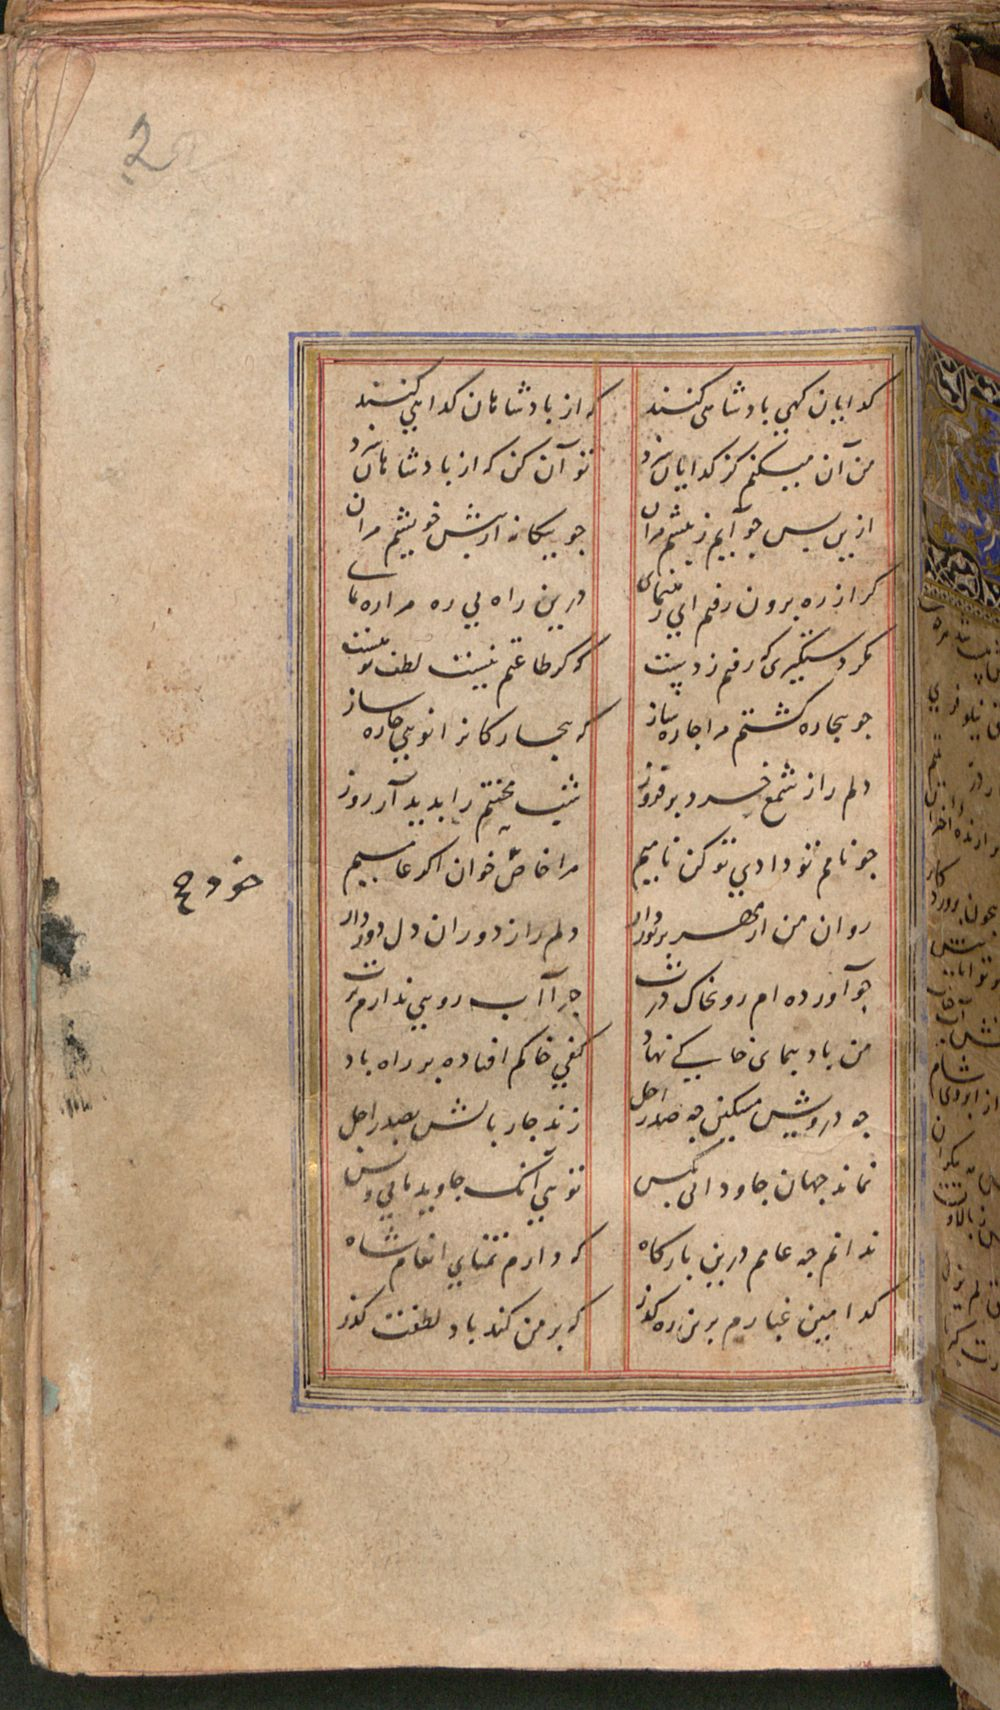 2
كدایان كهی بادشاهی كنند که از بادشاهان كدایی كنند
من آن میكنم كز كدایان سزد تو آن كن كه از بادشاهان سزد
ازین بس جو آیم ز بیشم مران جو بیكانه از بیش خویشم مران
كر از ره برون رفتم ای رهنمای درین راه بی ره مرا ره نمای
مكر دستكیری كه رفتم ز دست كه كر طاعتم نیست لطف تو هست
جو بیجاره كشتم مرا جاره ساز كه بیجاركانرا تویی جاره ساز
دلم را ز شمع خرد بر فروز شب بختم را بدید آر روز
جو نامم تو دادی تو كن نامیم مرا خاص خوان اكر عامیم
روان من از مهر بر نور دار دلم را ز دوران دل دور دار
جو آورده ام رو بخاك درت جرا آب رویی ندارم برت
من باد بیمای خاكی نهاد كفی خاكم افتاده بر راه باد
جه درویش مسكین جه صدر اجل زند جار بالش بصدر اجل
نماند جهان جاودانی بكس تویی آنك جاوید مانی و بس
ندانم جه عامم درین باركاه كه دارم تمنای انعام شاه
كدامین غبارم برین ره كذر كه بر من كند باد لطفت كذر